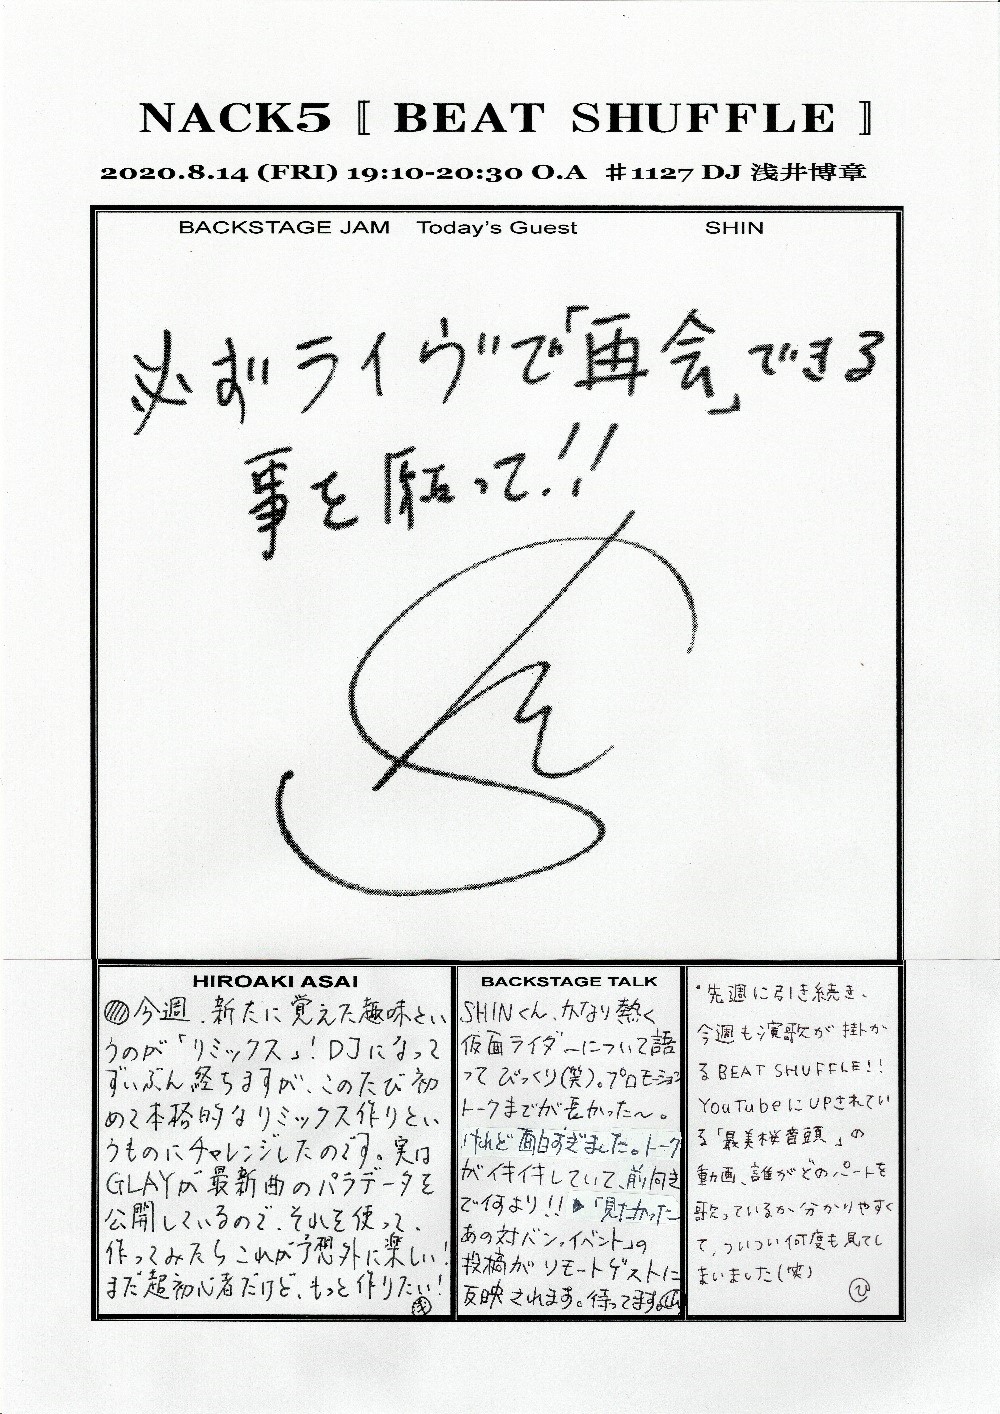 NACK5 〚 BEAT SHUFFLE 〛
2020.8.14 (FRI) 19:10-20:30 O.A ♯1127 DJ 浅井博章
BACKSTAGE JAM Today's Guest SHIN
必ずライヴで「再会」できる
事を願って!!
HIROAKI ASAI
今週、新たに覚えた趣味とい
うのが「リミックス」! DJになって
ずいぶん経ちますが、このたび初
めて本格的なリミックス作りとい
うものにチャレンジしたのです。実は
GLAYが最新曲のパラデータを
公開しているので、それを使って、
作ってみたらこれが予想外に楽しい!
まだ超初心者だけど、もっと作りたい!
浅
BACKSTAGE TALK
SHINくん、かなり熱く
仮面ライダーについて語
ってびっくり(笑)。プロモーション
トークまでが長かった〜。
けれど面白すぎました。トーク
がイキイキしていて、前向き
で何より!! 「見たかった
あの対バン、イベント」の
投稿がリモートゲストに
反映されます。待ってます。山
・先週に引き続き、
今週も演歌が掛か
るBEAT SHUFFLE!!
YouTubeにUPされてい
る「最美桜音頭」の
動画、誰がどのパートを
歌っているか分かりやすく
て、ついつい何度も見てし
まいました(笑)
ひ